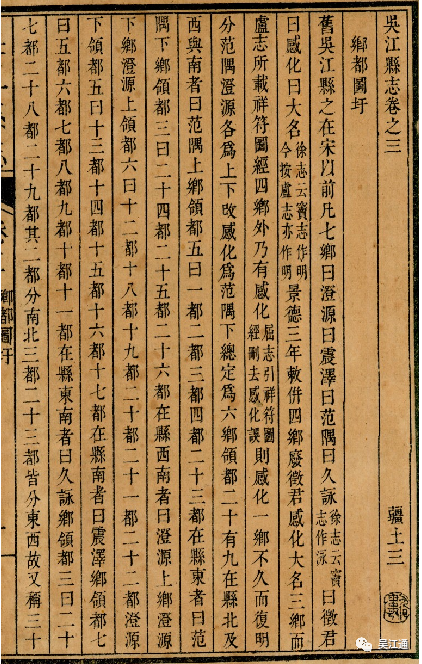 吳江縣志卷之三 疆土三
鄉都圖圩
舊吳江縣之在宋以前凡七鄉曰澄源曰震澤曰范隅曰久詠徐志云竇志作泳曰徵君
曰感化曰大名徐志云竇志作明今按盧志亦作明景德三年敕併四鄉廢徵君感化大名三鄉而
盧志所載祥符圖經四鄉外乃有感化屈志引祥符圖經刪去感化誤則感化一鄉不久而復明
分范隅澄源各爲上下改感化爲范隅下總定爲六鄉領都二十有九在縣北及
西與南者曰范隅上鄉領都五曰一都二都三都四都二十三都在縣東者曰范
隅下鄉領都三曰二十四都二十五都二十六都在縣西南者曰澄源上鄉澄源
下鄉澄源上領都六曰十二都十八都十九都二十都二十一都二十二都澄源
下領都五曰十三都十四都十五都十六都十七都在縣南者曰震澤鄉領都七
曰五都六都七都八都九都十都十一都在縣東南者曰久詠鄉領都三曰二十
七都二十八都二十九都其二都分南北三都二十三都皆分東西故又稱三十
鄉都圖圩
吴江通